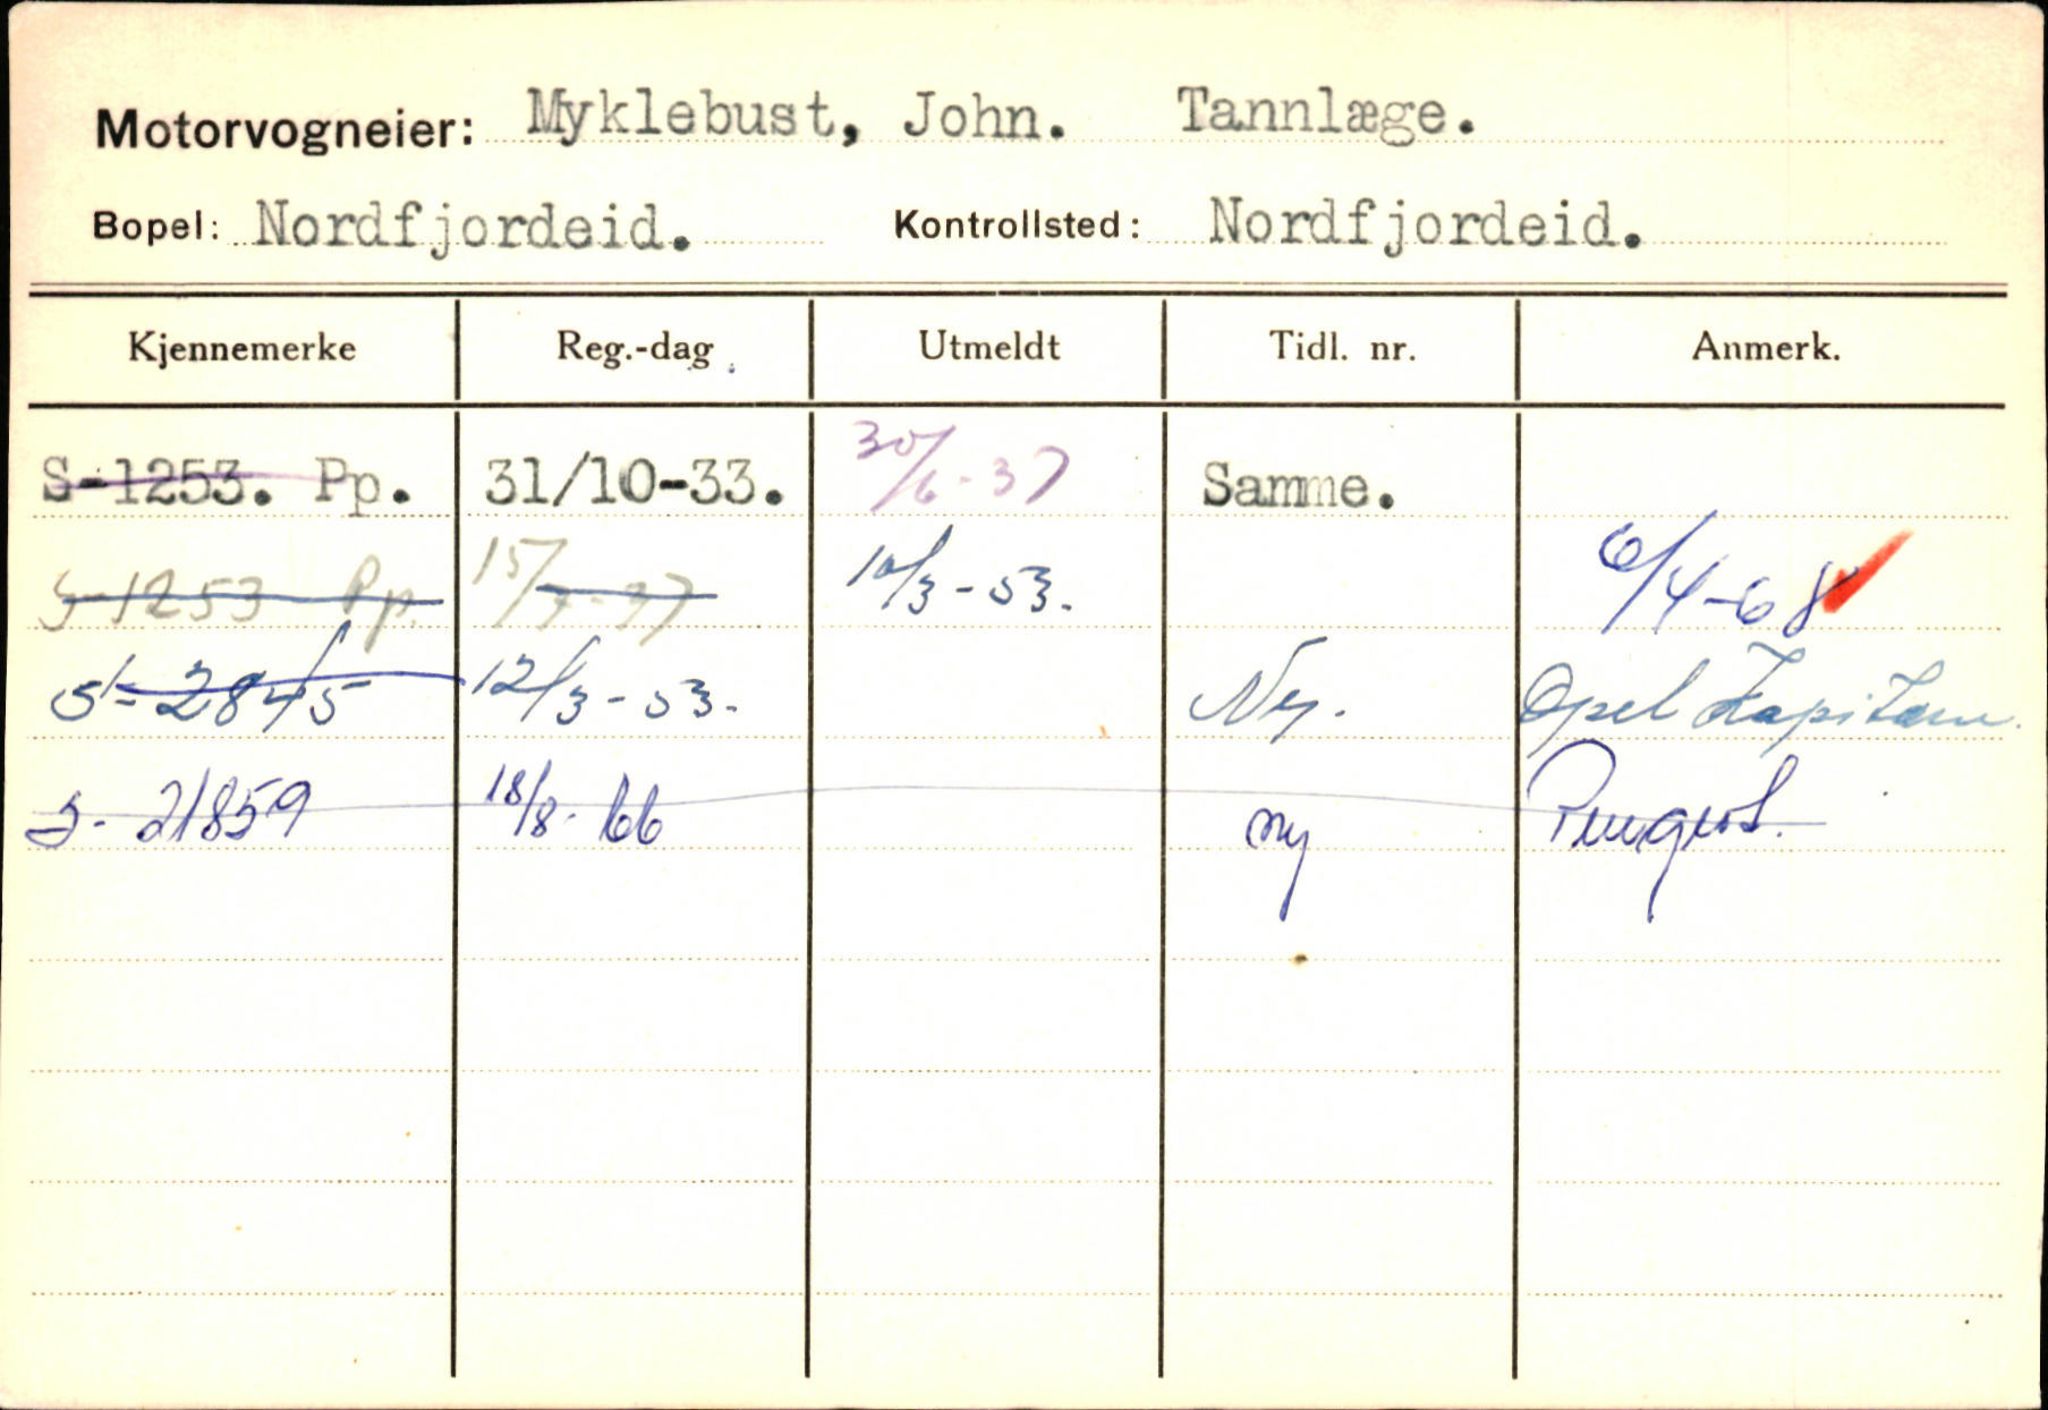 Motorvogneier: Myklebust, John. Tannlæge.
Bopel: Nordfjordeid. Kontrollsted: Nordfjordeid.
Kjennemerke Reg.-dag Utmeldt Tidl. nr. Anmerk.
S-1253. Pp. 31/10-33. 30/6-37 Samme.
S-1253 Pp. 15/7-37 10/3-53. 6/4-68
S-2845 12/3-53. Ny. Opel Kapitan.
S-21859 18/8-66 ny Peugeot.